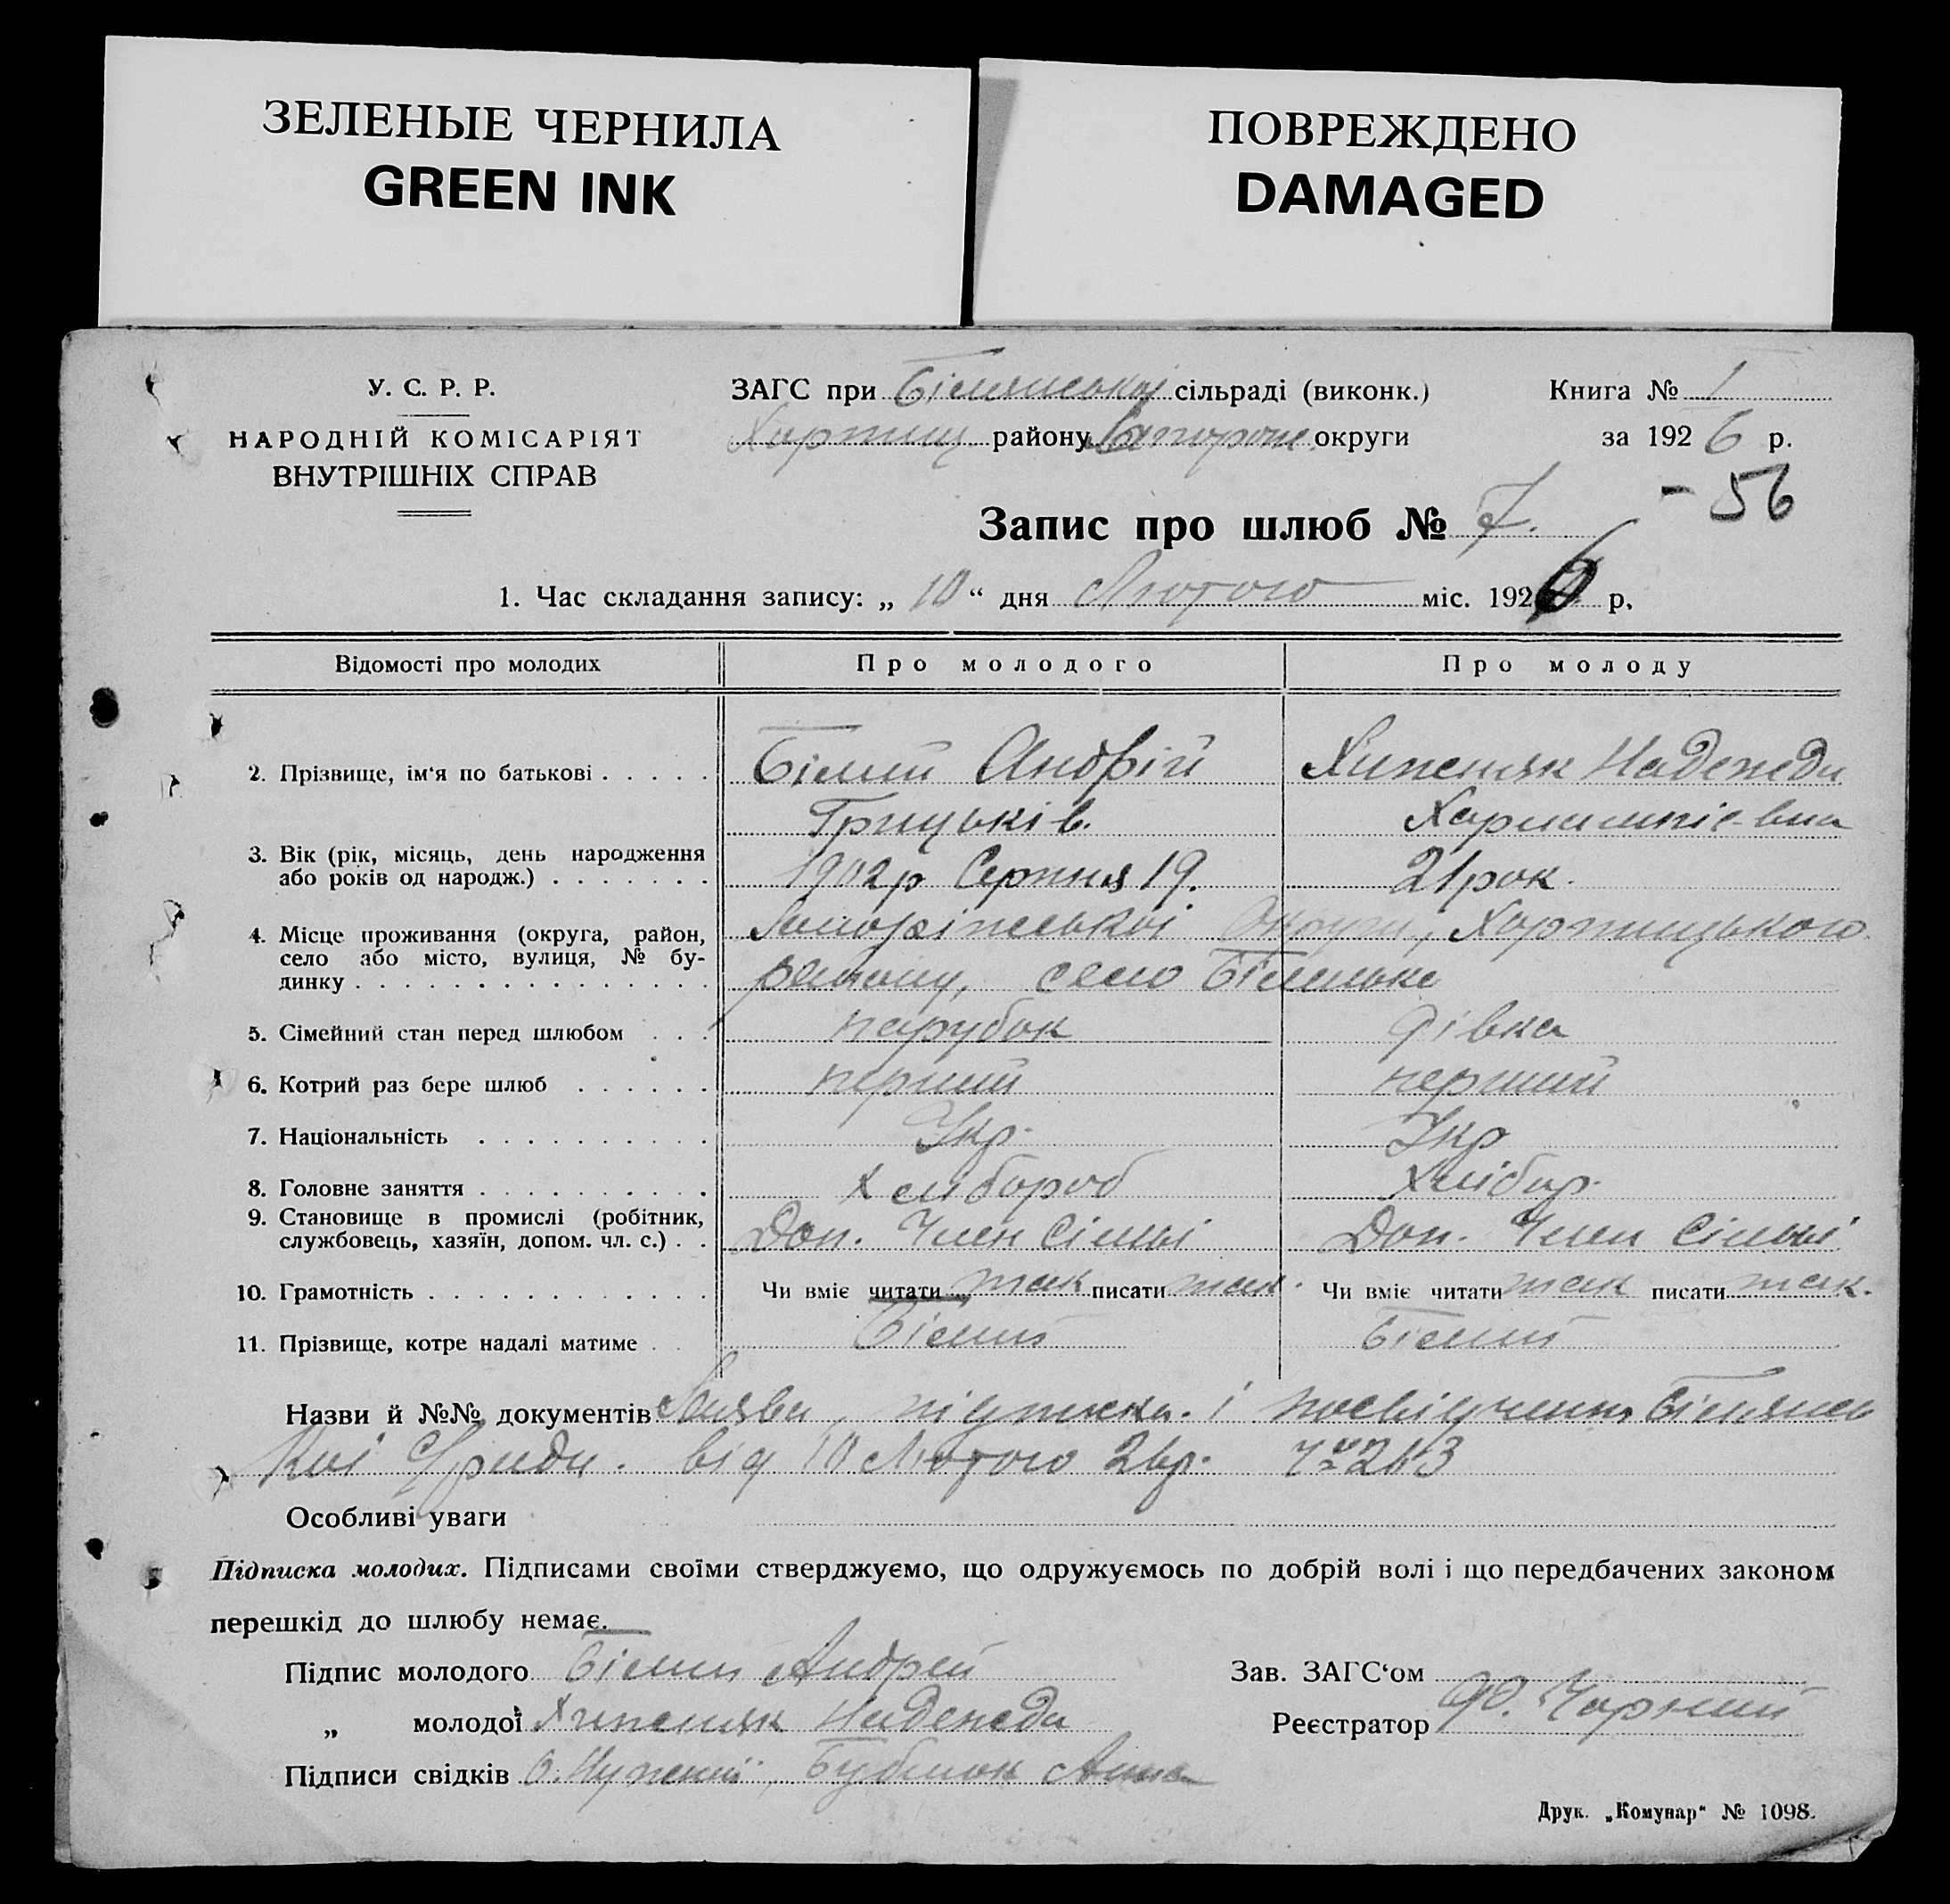 ЗЕЛЕНЫЕ ЧЕРНИЛА
GREEN INK
ПОВРЕЖДЕНО
DAMAGED
У. С. Р. Р.
НАРОДНІЙ КОМІСАРІЯТ
ВНУТРІШНІХ СПРАВ
ЗАГС при Біленської сільраді (виконк.)
Хортиц району Запорож. округи
Книга № 1
за 1926 р.
- 56
Запис про шлюб № 7.
1. Час складання запису: „ 10 “ дня Лютого міс. 1926 р.
Відомості про молодих Про молодого Про молоду
2. Прізвище, ім‘я по батькові Білий Андрій Надежда
Грицьків. Харлампіевна
3. Вік (рік, місяць, день народження
або років од народж.) 1902р Серпня 19. 21 рок.
4. Місце проживання (округа, район, Округи, Хортицького
село або місто, вулиця, № бу-
динку району, село Біленьке
5. Сімейний стан перед шлюбом парубок дівка
6. Котрий раз бере шлюб перший перший
7. Національність Укр. Укр
8. Головне заняття Хлібороб Хлібор.
9. Становище в промислі (робітник,
службовець, хазяїн, допом. чл. с.) Доп. Член Сімьі Доп. Член Сімьі
10. Грамотність Чи вміє читати так писати так. Чи вміє читати так писати так.
11. Прізвище, котре надалі матиме Білий Білий
Назви й №№ документів Заява, підписка. і посвідчення Біленсь
кої С/ради. від 10 Лютого 26р. Ч 263
Особливі уваги
Підписка молодих. Підписами своїми стверджуємо, що одружуємось по добрій волі і що передбачених законом
перешкід до шлюбу немає.
Підпис молодого Білий Андрей
„ молодої Надежда
Підписи свідків Анна
Зав. ЗАГС‘ом
Реєстратор Чорний
Друк. „Комунар“ № 1098.